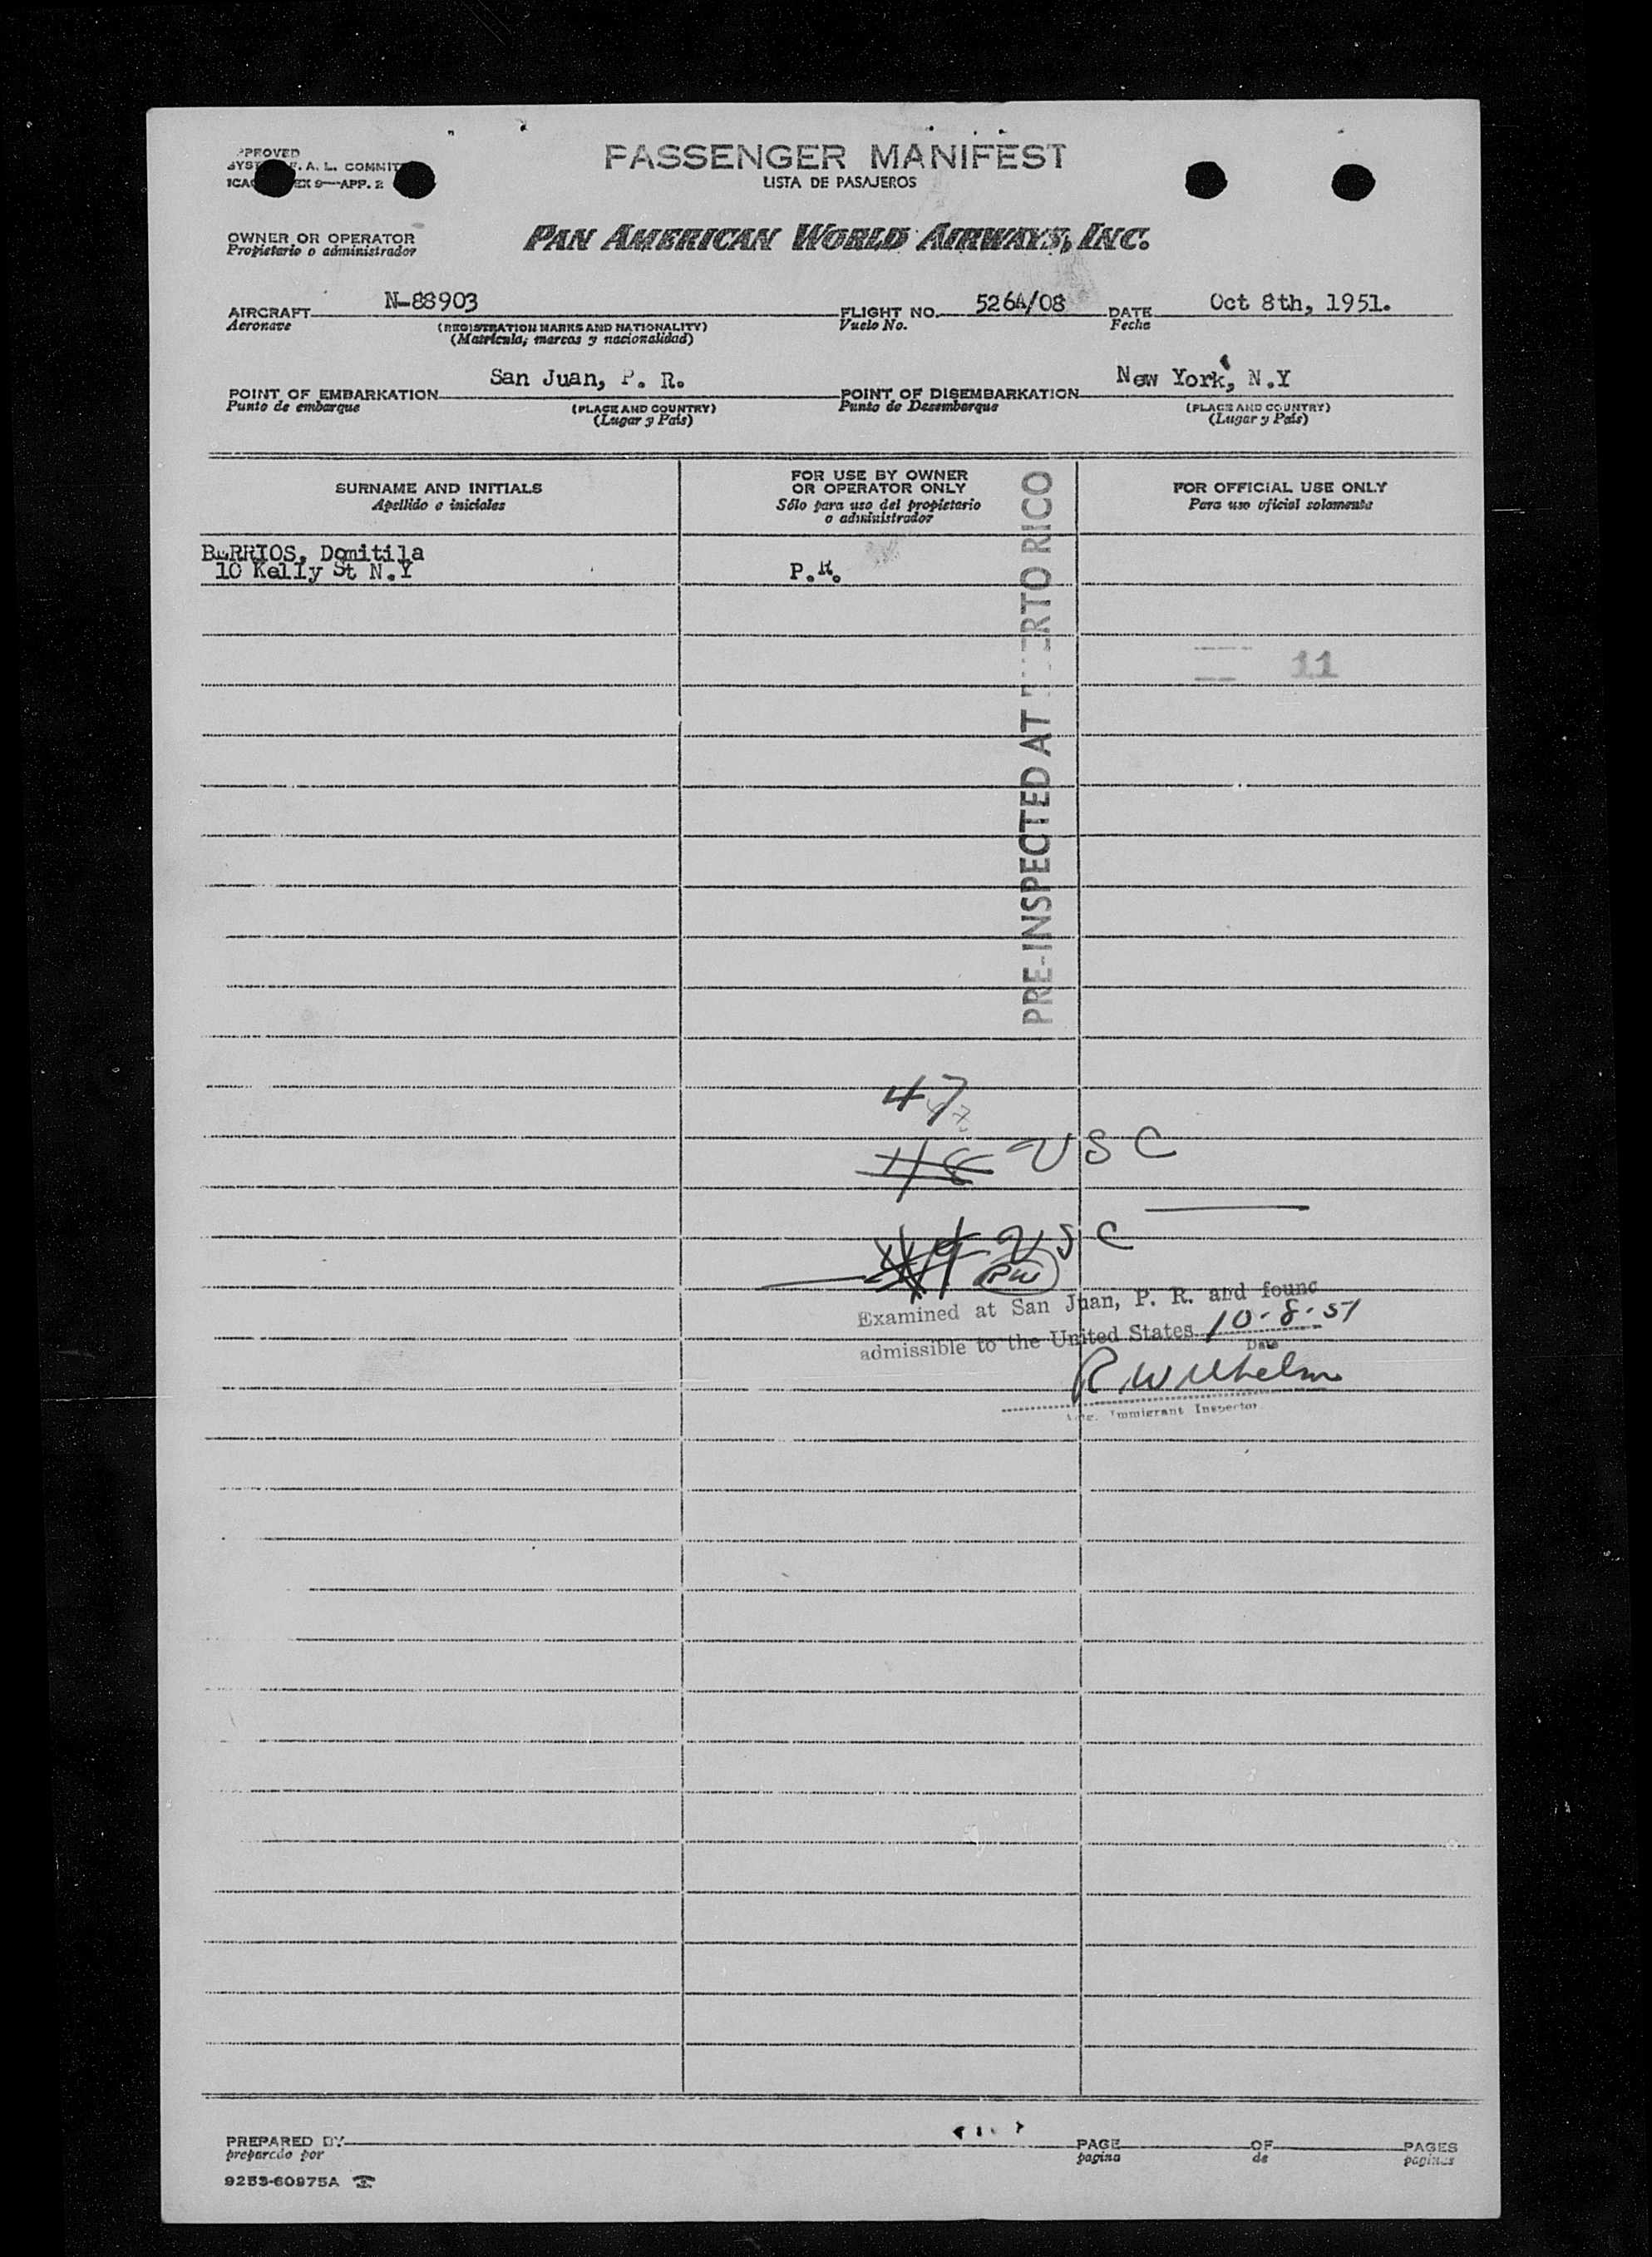 PASSENGER MANIFEST
LISTA DE PASAJEROS
F. A. L.
9—APP. 2
OWNER OR OPERATOR
Propietario o administrador
PAN AMERICAN WORLD AIRWAYS, INC.
AIRCRAFT N-88903 FLIGHT NO. 526A/08 DATE Oct 8th, 1951.
Aeronave (REGISTRATION MARKS AND NATIONALITY) Vuelo No. Fecha
(Matrícula, marcas y nacionalidad)
POINT OF EMBARKATION San Juan, P. R. POINT OF DISEMBARKATION New York, N.Y
Punto de embarque (PLACE AND COUNTRY) Punto de Desembarque (PLACE AND COUNTRY)
(Lugar y País) (Lugar y País)
SURNAME AND INITIALS
Apellido e iniciales
FOR USE BY OWNER
OR OPERATOR ONLY
Sólo para uso del propietario
o administrador
FOR OFFICIAL USE ONLY
Para uso oficial solamente
BARRIOS, Domitila
10 Kelly St N.Y P.R.
11
PRE-INSPECTED AT RICO
47
48 USC
USC
RW
Examined at San Juan, P. R. and found
admissible to the United States 10-8-51
Date
R. Wilhelm
Immigrant Inspector
PREPARED BY PAGE OF PAGES
preparado por pagina de paginas
9253-60975A